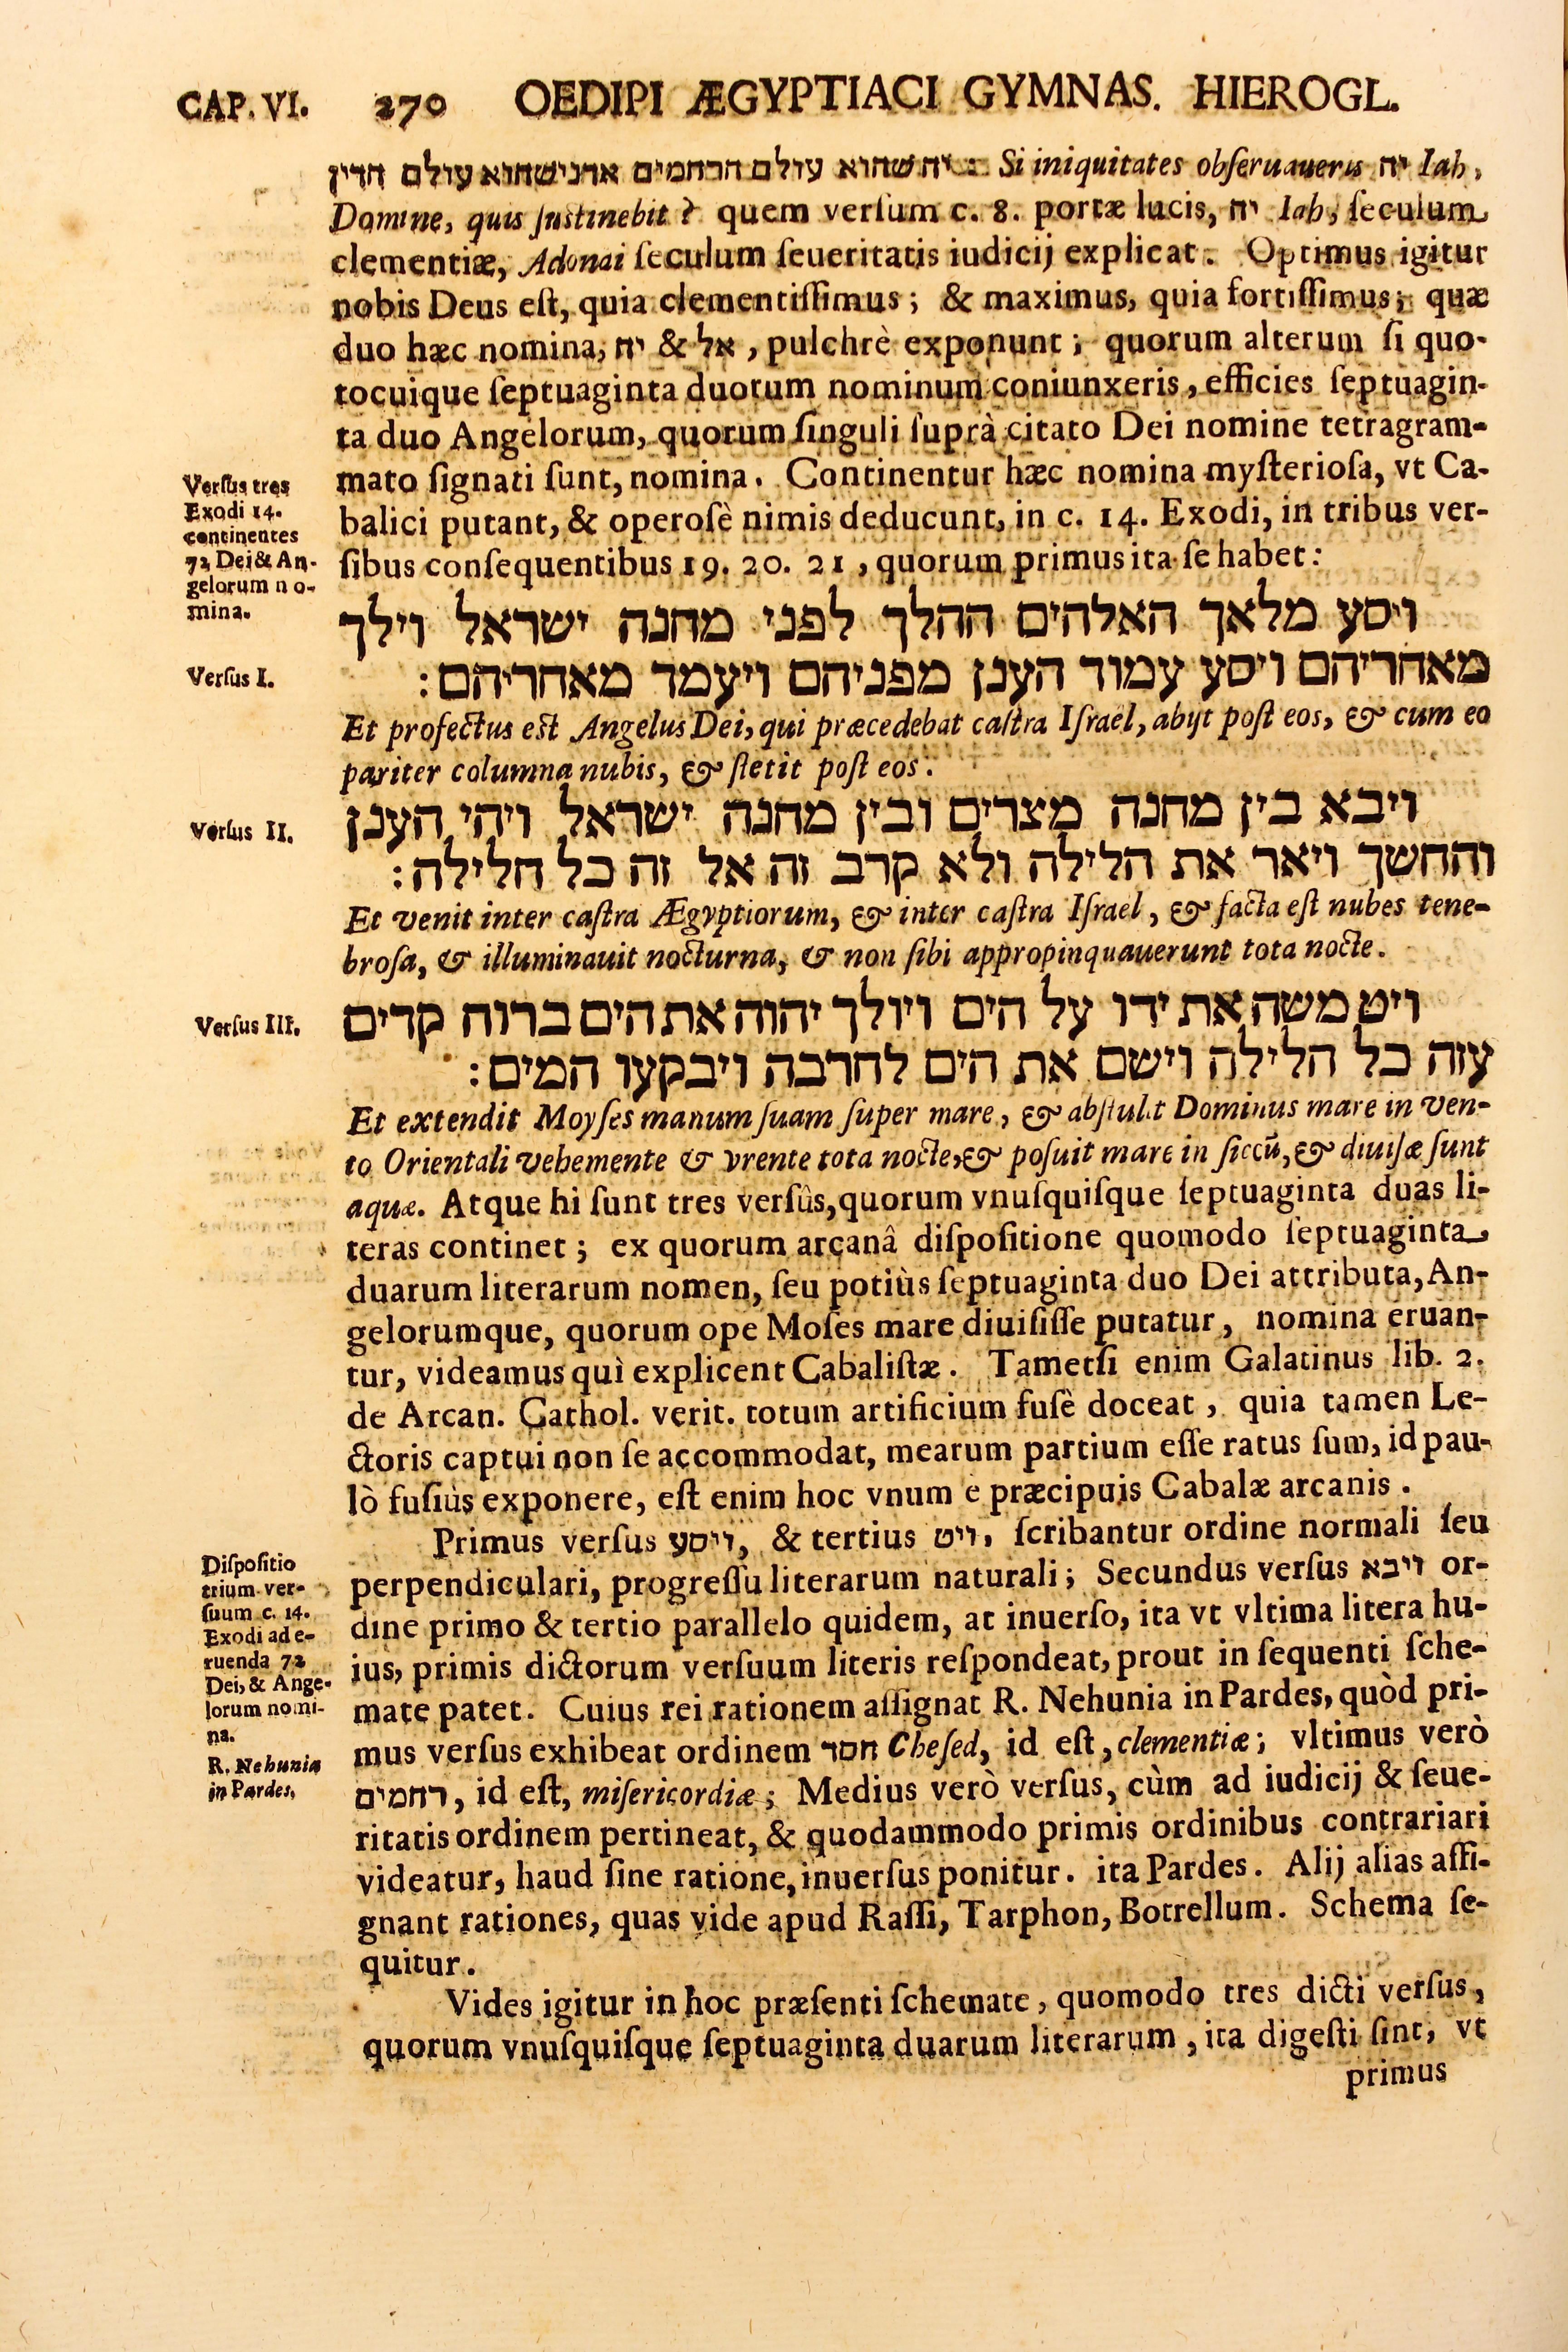 CAP. VI. 270 OEDIPI ÆGYPTIACI GYMNAS. HIEROGL.
יה שהוא עולם הרחמים אדני שהוא עולם הדין : Si iniquitates obſeruaueris יה Iah,
Domine, quis ſustinebit? quem verſum c. 8. portæ lucis, יה Iah, ſeculum
clementiæ, Adonai ſeculum ſeueritatis iudicij explicat. Optimus igitur
nobis Deus eſt, quia clementiſſimus; & maximus, quia fortiſſimus; quæ
duo hæc nomina, יה & אל, pulchrè exponunt; quorum alterum ſi quo-
tocuique ſeptuaginta duorum nominum coniunxeris, efficies ſeptuagin-
ta duo Angelorum, quorum ſinguli ſuprà citato Dei nomine tetragram-
mato ſignati ſunt, nomina. Continentur hæc nomina myſterioſa, vt Ca-
balici putant, & operoſè nimis deducunt, in c. 14. Exodi, in tribus ver-
ſibus conſequentibus 19. 20. 21, quorum primus ita ſe habet:
Verſus tres
Exodi 14.
continentes
72 Dei & An-
gelorum no-
mina.
ויסע מלאך האלהים ההלך לפני מחנה ישראל וילך
Verſus I.
מאחריהם ויסע עמוד הענן מפניהם ויעמד מאחריהם:
Et profectus est Angelus Dei, qui præcedebat caſtra Iſrael, abijt poſt eos, & cum eo
pariter columna nubis, & ſtetit poſt eos.
Verſus II.
ויבא בין מחנה מצרים ובין מחנה ישראל ויהי הענן
והחשך ויאר את הלילה ולא קרב זה אל זה כל הלילה:
Et venit inter caſtra Ægyptiorum, & inter caſtra Iſrael, & facta eſt nubes tene-
broſa, & illuminauit nocturna, & non ſibi appropinquauerunt tota nocte.
Verſus III.
ויט משה את ידו על הים ויולך יהוה את הים ברוח קדים
עזה כל הלילה וישם את הים לחרבה ויבקעו המים:
Et extendit Moyſes manum ſuam ſuper mare, & abſtulit Dominus mare in ven-
to Orientali vehemente & vrente tota nocte, & poſuit mare in ſiccũ, & diuiſæ ſunt
aquæ. Atque hi ſunt tres verſûs, quorum vnuſquiſque ſeptuaginta duas li-
teras continet; ex quorum arcanâ diſpoſitione quomodo ſeptuaginta
duarum literarum nomen, ſeu potiùs ſeptuaginta duo Dei attributa, An-
gelorumque, quorum ope Moſes mare diuiſiſſe putatur, nomina eruan-
tur, videamus quì explicent Cabaliſtæ. Tametſi enim Galatinus lib. 2.
de Arcan. Cathol. verit. totum artificium fuſè doceat, quia tamen Le-
ctoris captui non ſe accommodat, mearum partium eſſe ratus ſum, id pau-
lò fuſiùs exponere, eſt enim hoc vnum e præcipuis Cabalæ arcanis.
Primus verſus ויסע, & tertius ויט, ſcribantur ordine normali ſeu
perpendiculari, progreſſu literarum naturali; Secundus verſus ויבא or-
dine primo & tertio parallelo quidem, at inuerſo, ita vt vltima litera hu-
ius, primis dictorum verſuum literis reſpondeat, prout in ſequenti ſche-
mate patet. Cuius rei rationem aſſignat R. Nehunia in Pardes, quòd pri-
mus verſus exhibeat ordinem חסד Cheſed, id eſt, clementiæ; vltimus verò
רחמים, id eſt, miſericordiæ; Medius verò verſus, cùm ad iudicij & ſeue-
ritatis ordinem pertineat, & quodammodo primis ordinibus contrariari
videatur, haud ſine ratione, inuerſus ponitur. ita Pardes. Alij alias aſſi-
gnant rationes, quas vide apud Raſſi, Tarphon, Botrellum. Schema ſe-
quitur.
Diſpoſitio
trium ver-
ſuum c. 14.
Exodi ad e-
ruenda 72
Dei, & Ange-
lorum nomi-
na.
R. Nehunia
in Pardes.
Vides igitur in hoc præſenti ſchemate, quomodo tres dicti verſus,
quorum vnuſquiſque ſeptuaginta duarum literarum, ita digeſti ſint, vt
primus